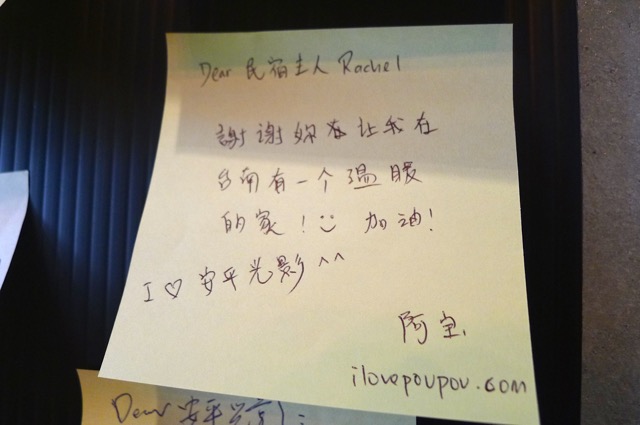 Dear 民宿主人 Rachel
謝謝妳让我在
台南有一个温暖
的家！:) 加油！
I ♡ 安平光影 ^^
阿宝
ilovepoupou.com
Dear 安平